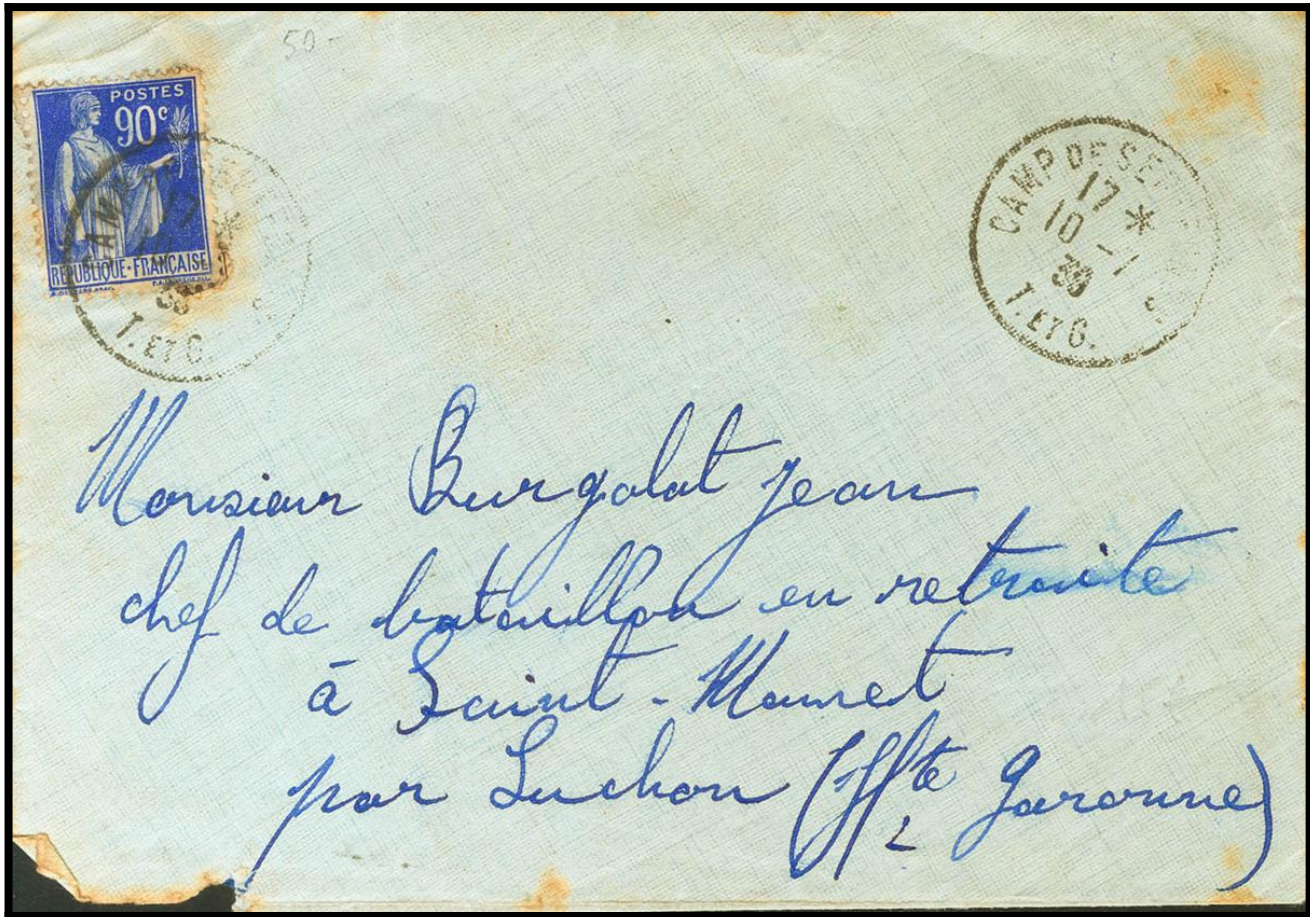 50-
POSTES
90c
REPUBLIQUE-FRANÇAISE
17 *
10 -1
T. ET G.
CAMP DE
17 *
10 -1
T. ET G.
Monsieur Burgalat Jean
chef de bataillon en retraite
à Saint-Mamet
par Luchon (Hte Garonne)